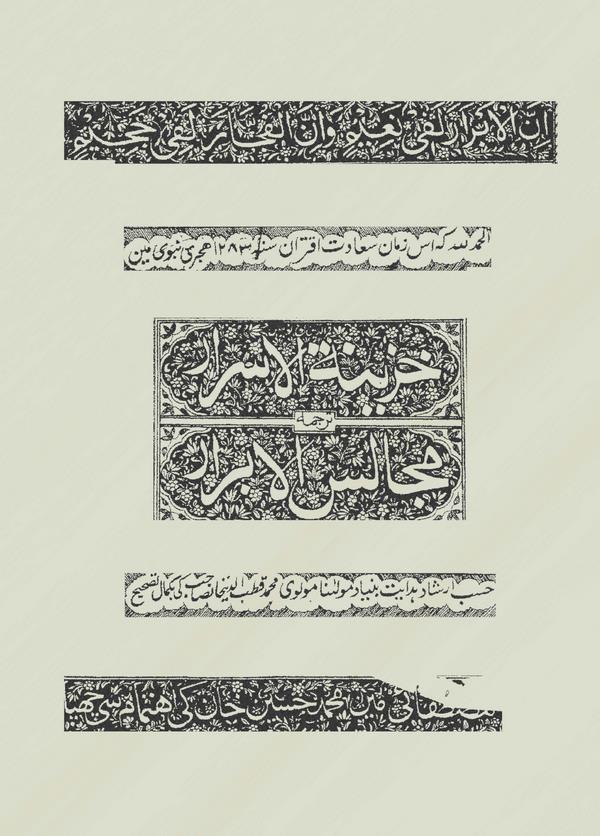 ان الابرار لفی نعیم وان الفجار لفی جحیم
الحمد للہ کہ اس زمان سعادت اقتران سنہ ۱۲۸۳ ہجری نبوی مین
خزینۃ الاسرار
ترجمہ
مجالس الابرار
حسب ارشاد ہدایت بنیاد مولانا مولوی محمد قطب الدینخانصاحب کی کمال تصحیح
مصطفائی مین محمد حسین خان کی اہتمام سی چھپا